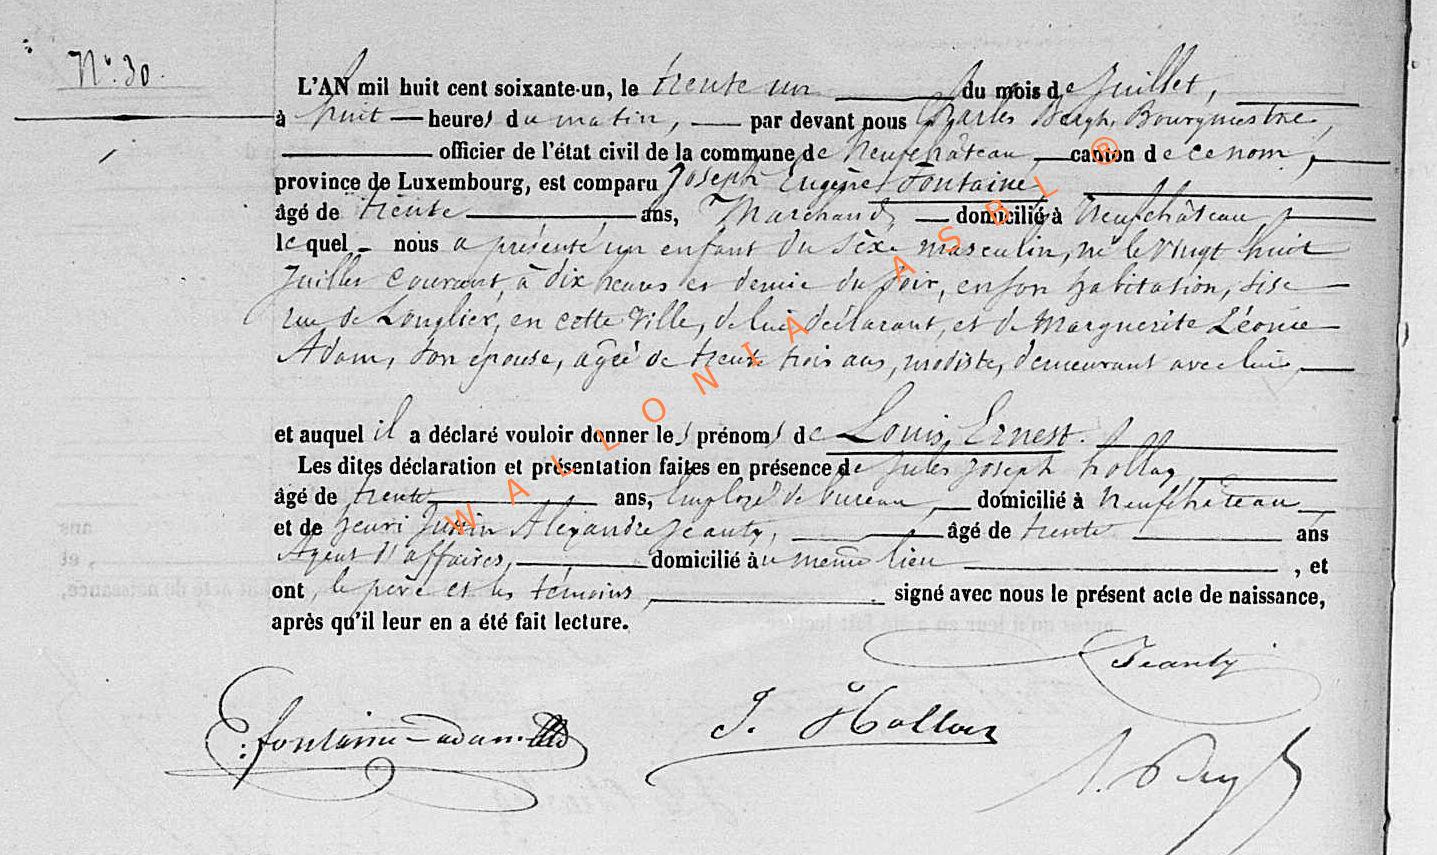 N° 30.
L'AN mil huit cent soixante-un, le trente un du mois de Juillet,
à huit heures du matin, par devant nous Charles Bergh, Bourgmestre,
officier de l'état civil de la commune de Neufchâteau canton de ce nom,
province de Luxembourg, est comparu Joseph Eugène Fontaine
âgé de trente ans, Marchand domicilié à Neufchâteau,
lequel nous a présenté un enfant du sèxe masculin, né le vingt huit
Juillet courant à dix heures et demie du soir, en son habitation, sise
rue de Longlier, en cette Ville, de lui déclarant, et de Marguerite Léonie
Adam, son épouse, agée de trente trois ans, modiste, demeurant avec lui,
et auquel il a déclaré vouloir donner les prénoms de Louis, Ernest.
Les dites déclaration et présentation faites en présence de Jules Joseph
âgé de trente ans, Employé de bureau, domicilié à Neufchâteau
et de henri Justin Alexandre Jeanty, âgé de trente ans
Agent d'affaires, domicilié au même lieu , et
ont, le père et les témoins, signé avec nous le présent acte de naissance,
après qu'il leur en a été fait lecture.
Jeanty
E. fontaine-adam
J. Hollay
WALLONIA ASBL ®